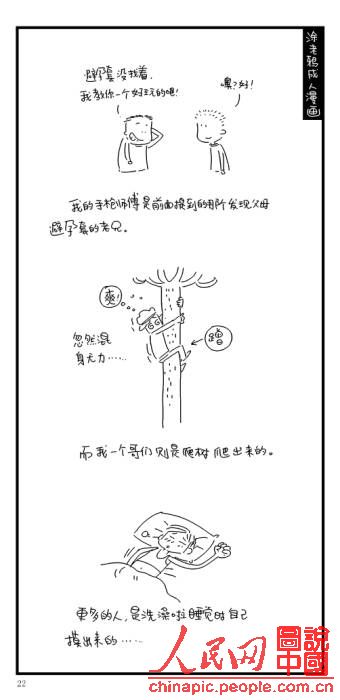 涂老鸦成人漫画
避孕套没找着,
我教你一个好玩的吧!
噢?好!
我的手枪师傅是前面提到的那个发现父母
避孕套的老兄。
爽!
忽然混
身无力……
蹭
而我一个哥们则是爬树爬出来的。
更多的人,是洗澡啦睡觉时自己
摸出来的……
22
人民网
圖說中國
chinapic.people.com.cn